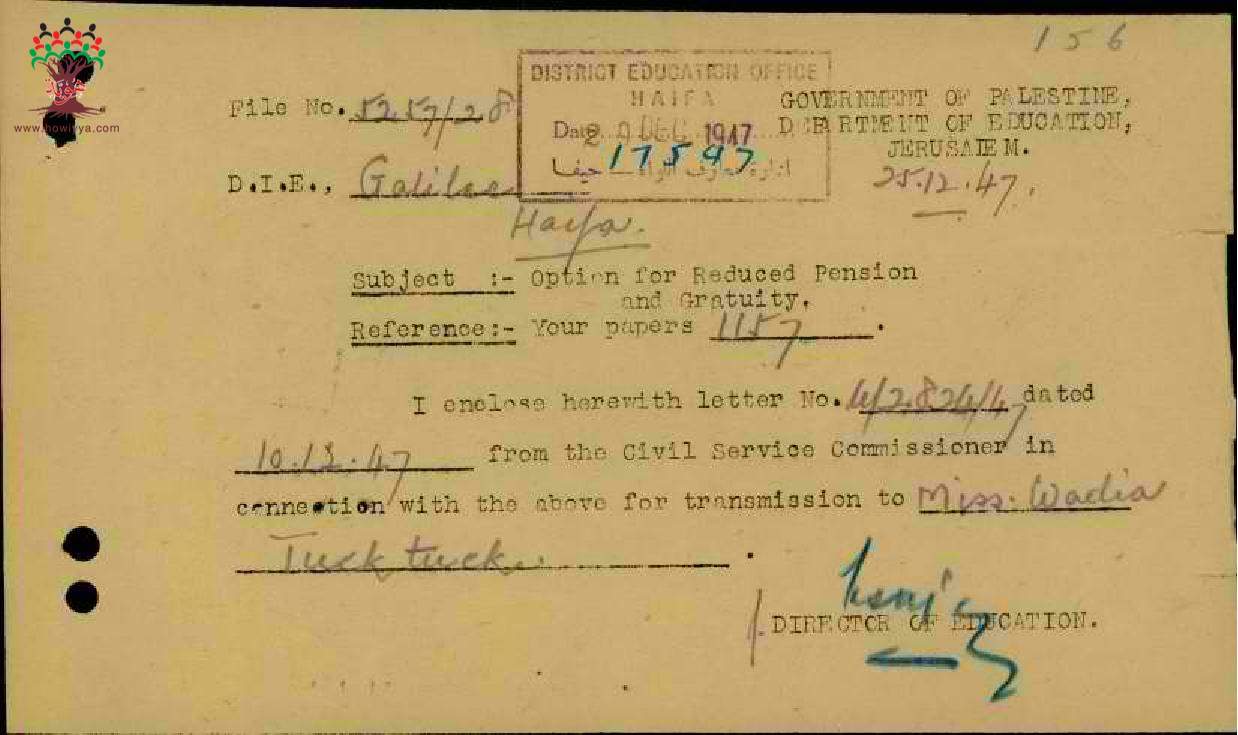 156
www.howiyya.com
DISTRICT EDUCATION OFFICE
HAIFA
Date 29 DEC 1947
17597
حيفا
File No. 5257/28
GOVERNMENT OF PALESTINE,
DEPARTMENT OF EDUCATION,
JERUSALEM.
25.12.47.
D.I.E., Galilee
Haifa.
Subject :- Option for Reduced Pension
and Gratuity.
Reference:- Your papers 1157.
I enclose herewith letter No. dated
10.12.47 from the Civil Service Commissioner in
connection with the above for transmission to Miss. Wadia
Tuck tuck.
DIRECTOR OF EDUCATION.